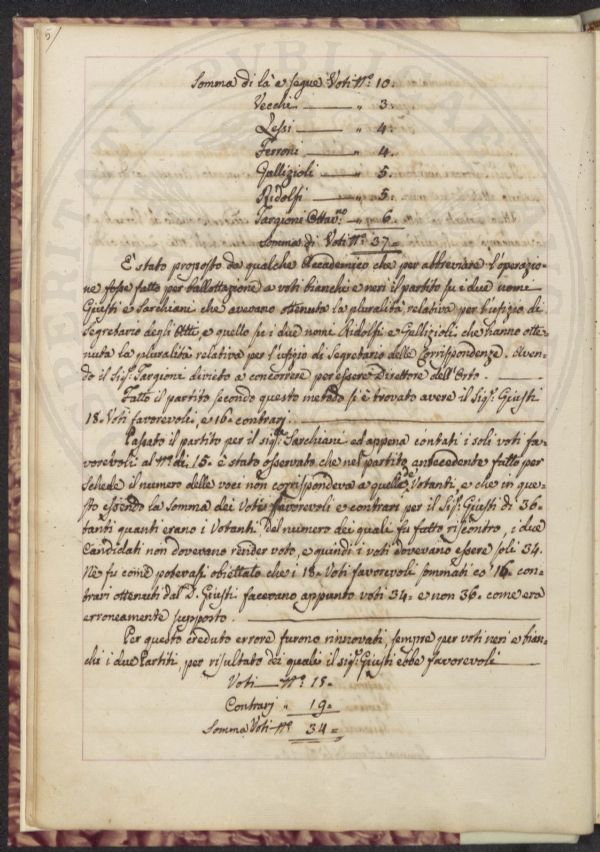 5/
Somma di là e segue Voti N.º 10=
Vecchi — " 3=
Lessi — " 4=
Ferroni — " 4=
Gallizioli — " 5=
Ridolfi — " 5=
Targioni Ottav.no — " 6=
Somma di Voti N.º 37=
E' stato proposto da qualche Accademico che per abbreviare l'operazio=
ne fosse fatto per ballottazione a voti bianchi e neri il partito su i due nomi
Giusti e Sarchiani che avevano ottenuta la pluralità relativa per l'ufizio di
Segretario degli Atti, e quello su i due nomi Ridolfi e Gallizioli che hanno otte=
nuta la pluralità relativa per l'ufizio di Segretario delle Corrispondenze. Aven=
do il Sig.r Targioni divieto a concorrere per essere Direttore dell'Orto.
Fatto il partito secondo questo metodo si è trovato avere il Sig.r Giusti
18. Voti favorevoli, e 16. contrarj.
Passato il partito per il Sig.r Sarchiani ed appena contati i soli voti fa=
vorevoli al N.º di 15. è stato osservato che nel partito antecedente fatto per
schede il numero delle voci non corrispondeva a quello de' Votanti, e che in que=
sto essendo la somma dei Voti favorevoli e contrari per il Sig.r Giusti di 36=
tanti quanti erano i Votanti del numero dei quali fu fatto riscontro, i due
Candidati non dovevano render voto, e quindi i voti dovevano essere soli 34.
Nè fu come potevasi obiettato che i 18= Voti favorevoli sommati co' 16= con=
trari ottenuti dal D. Giusti facevano appunto voti 34= e non 36= come era
erroneamente supposto.
Per questo creduto errore furono rinnovati sempre per voti neri e bian=
chi i due Partiti, per risultato dei quali il Sig.r Giusti ebbe favorevoli
Voti — N.º 15=
Contrarj " 19=
Somma Voti N.º 34=